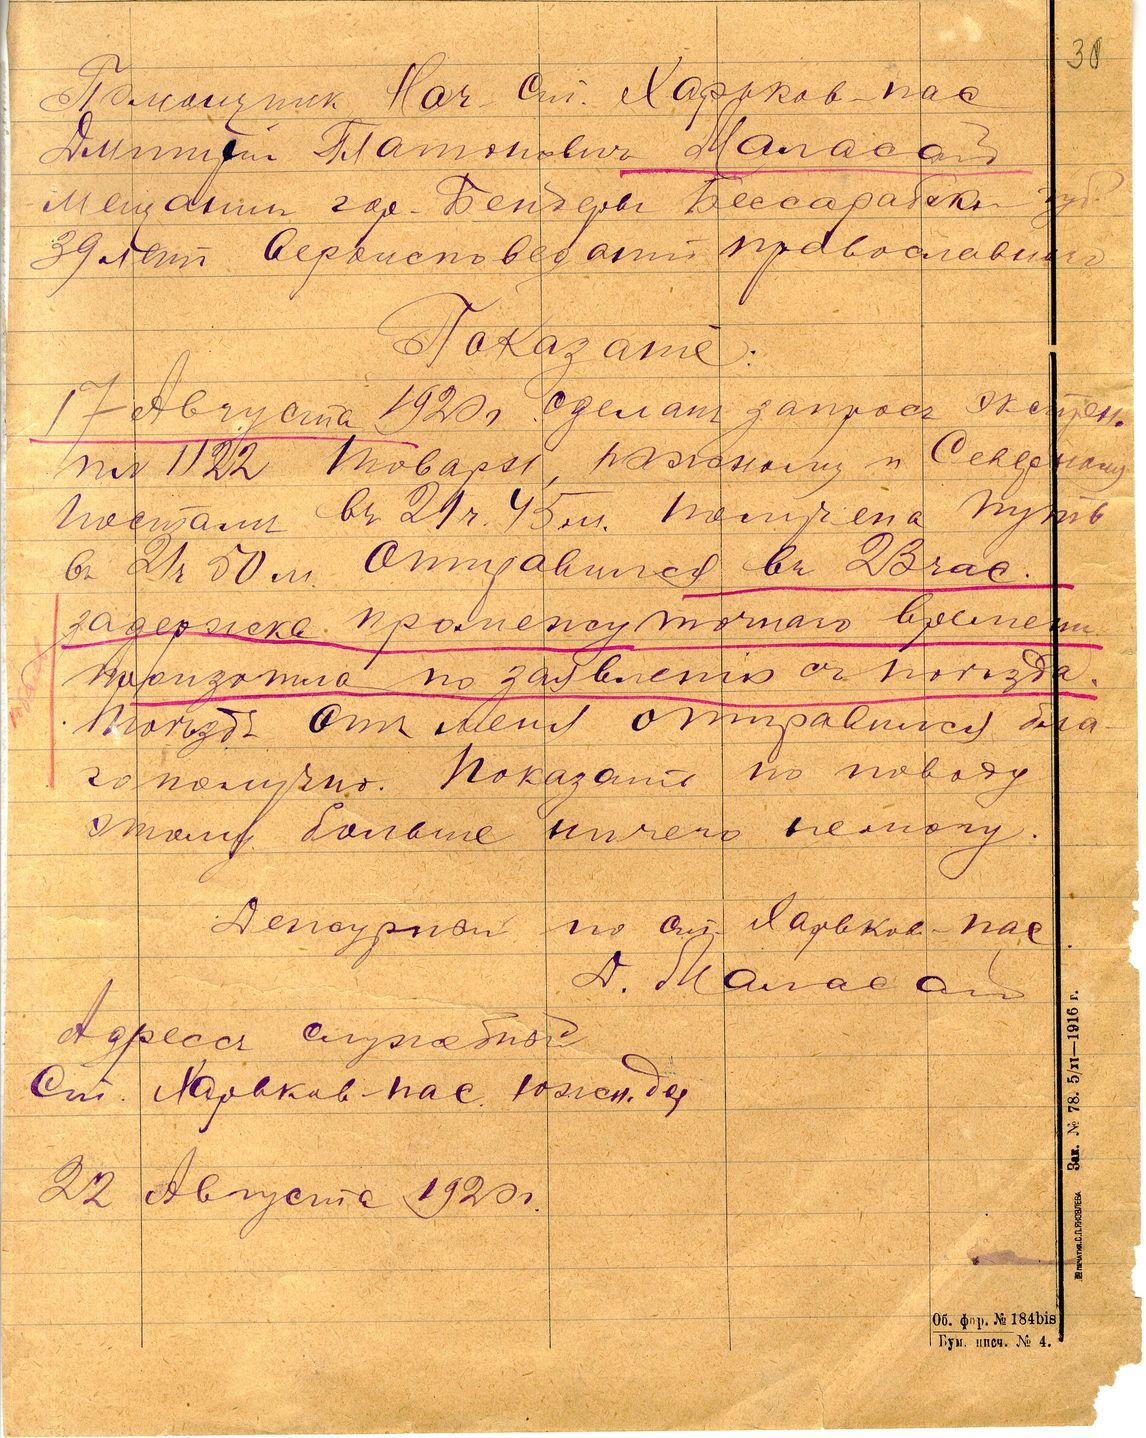 30
Помощник Нач. Ст. Харьков-пас
Дмитрій Платонович Маласай
мещанин гор. Бендеры Бессарабск. губ.
39 лет вероисповеданія православнаго
Показаніе:
17 Августа 1920 г. сделан запрос экстрен.
1122 Товарн. южному и Северному
постам въ 21 ч. 45 м. получена путь
въ 21 ч 50 м. Отправился въ 23 час.
задержка промежуточнаго времени
произошла по заявленію съ поезда.
Поездъ отъ меня отправился бла-
гополучно. Показать по поводу
этому больше ничего не могу.
Дежурный по ст. Харьков-пас
Д. Маласай
Адресъ служебный
Ст. Харьков-пас. Южн. дор
22 Августа 1920 г.
Зак. № 78. 5/II—1916 г.
Об. фор. № 184bis
Бум. писч. № 4.